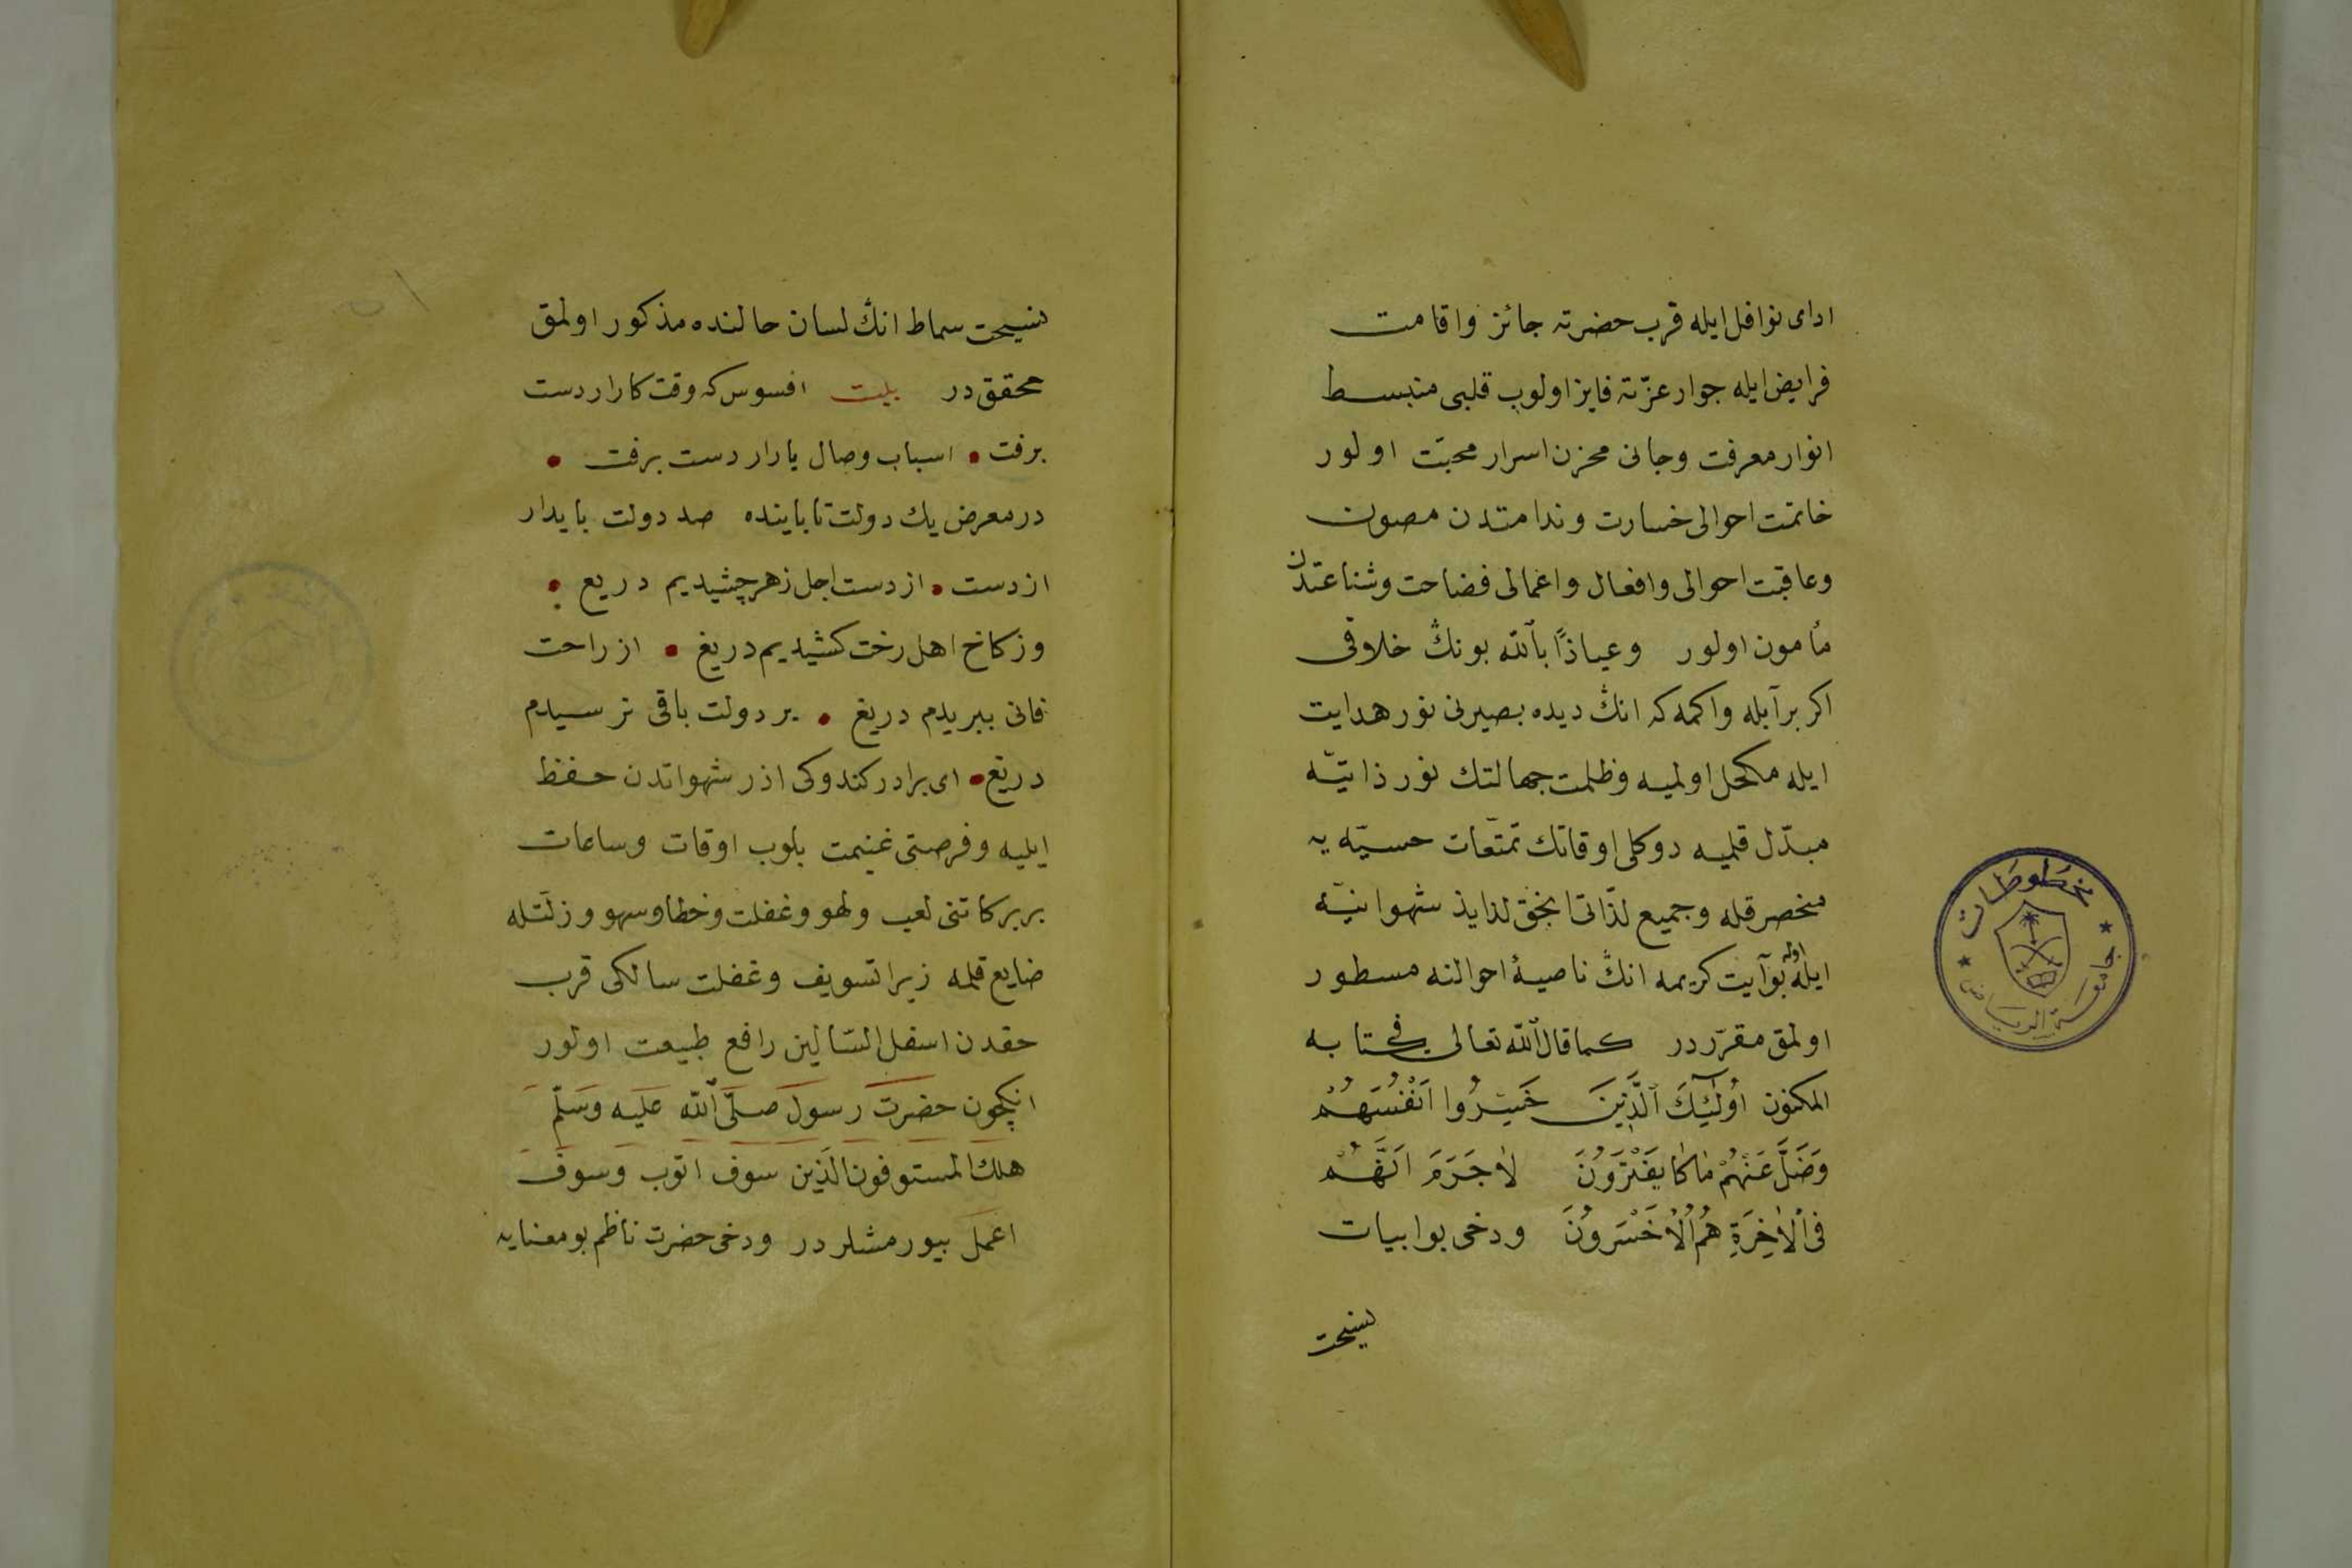 ادای نوافل ایله قرب حضرته جائز واقامت
فرایض ایله جوار عزّته فایز اولوب قلبی منبسط
انوار معرفت وجانی مخزن اسرار محبّت اولور
خاتمت احوالی خسارت وندامتدن مصون
وعاقبت احوالی وافعال واعمالی فضاحت وشناعتدن
مأمون اولور وعیاذًا بالله بونڭ خلافی
اکر برآبله واکمه که انڭ دیده بصیرنی نور هدایت
ایله مکحل اولمیه وظلمت جهالتك نور ذاتیّه
مبدّل قلمیه دوکلی اوقاتك تمتّعات حسیّه یه
منحصر قله وجمیع لذّاتی انجق لذایذ شهوانیّه
ایله اوله بو آیت کریمه انڭ ناصیهٔ احوالنه مسطور
اولمق مقرّر در کما قال الله تعالی فی کتابه
المکنون اُولٰٓئِكَ الَّذِينَ خَسِرُوا اَنْفُسَهُمْ
وَضَلَّ عَنْهُمْ مٰا كٰا يَفْتَرَوُنَ لاٰ جَرَمَ اَنَّهُمْ
فِى الْاٰخِرَةِ هُمُ الْاَخْسَرُونَ ودخی بو ابیات
نسیحت
مخطوطات
جامعة الرياض
نسیحت سماط انڭ لسان حالنده مذکور اولمق
محقق در بیت افسوس که وقت کار از دست
برفت • اسباب وصال یار از دست برفت •
در معرض یك دولت تا باینده صد دولت بایدار
از دست • از دست اجل زهر چشیدیم دریع •
وز کاخ اهل رخت کشیدیم دریغ • از راحت
فانی ببریدم دریغ • بر دولت باقی نرسیدم
دریغ • ای برادر کندوکی اذر شهواتدن حفظ
ایلیه وفرصتی غنیمت بلوب اوقات وساعات
بربرکاتنی لعب ولهو وغفلت وخطا وسهو وزلتله
ضایع قلمه زیرا تسویف وغفلت سالکی قرب
حقدن اسفل السّالین رافع طبیعت اولور
انكچون حضرت رسول صلّی الله علیه وسلّم
هلك المستوفون الذین سوف اتوب وسوف
اعمل بیورمشلر در ودخی حضرت ناظم بو معنایه